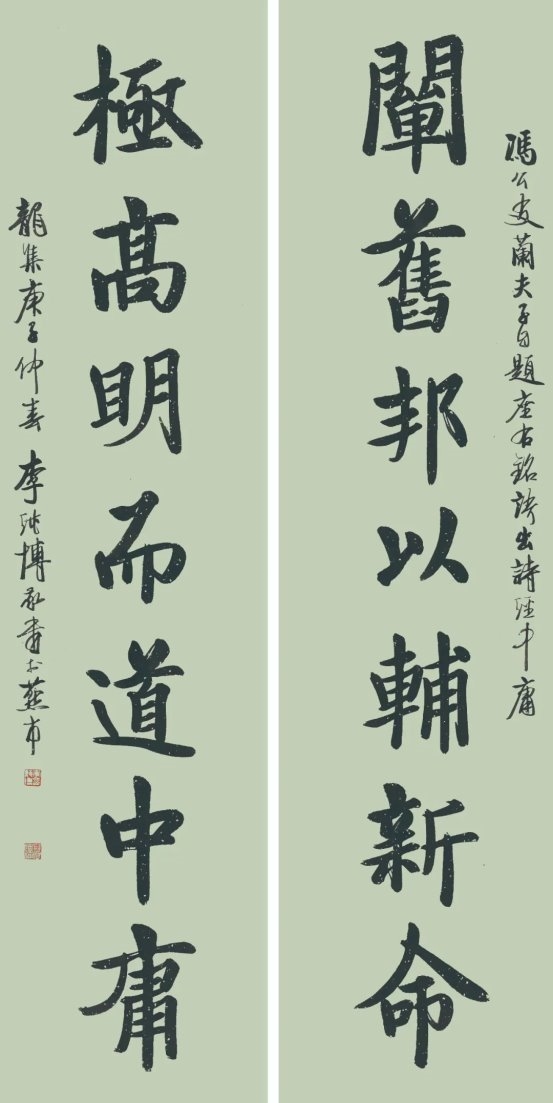 馮公友蘭夫子自題座右銘語出詩經中庸
闡舊邦以輔新命
極髙明而道中庸
龍集庚子仲春李純博敬書於燕市